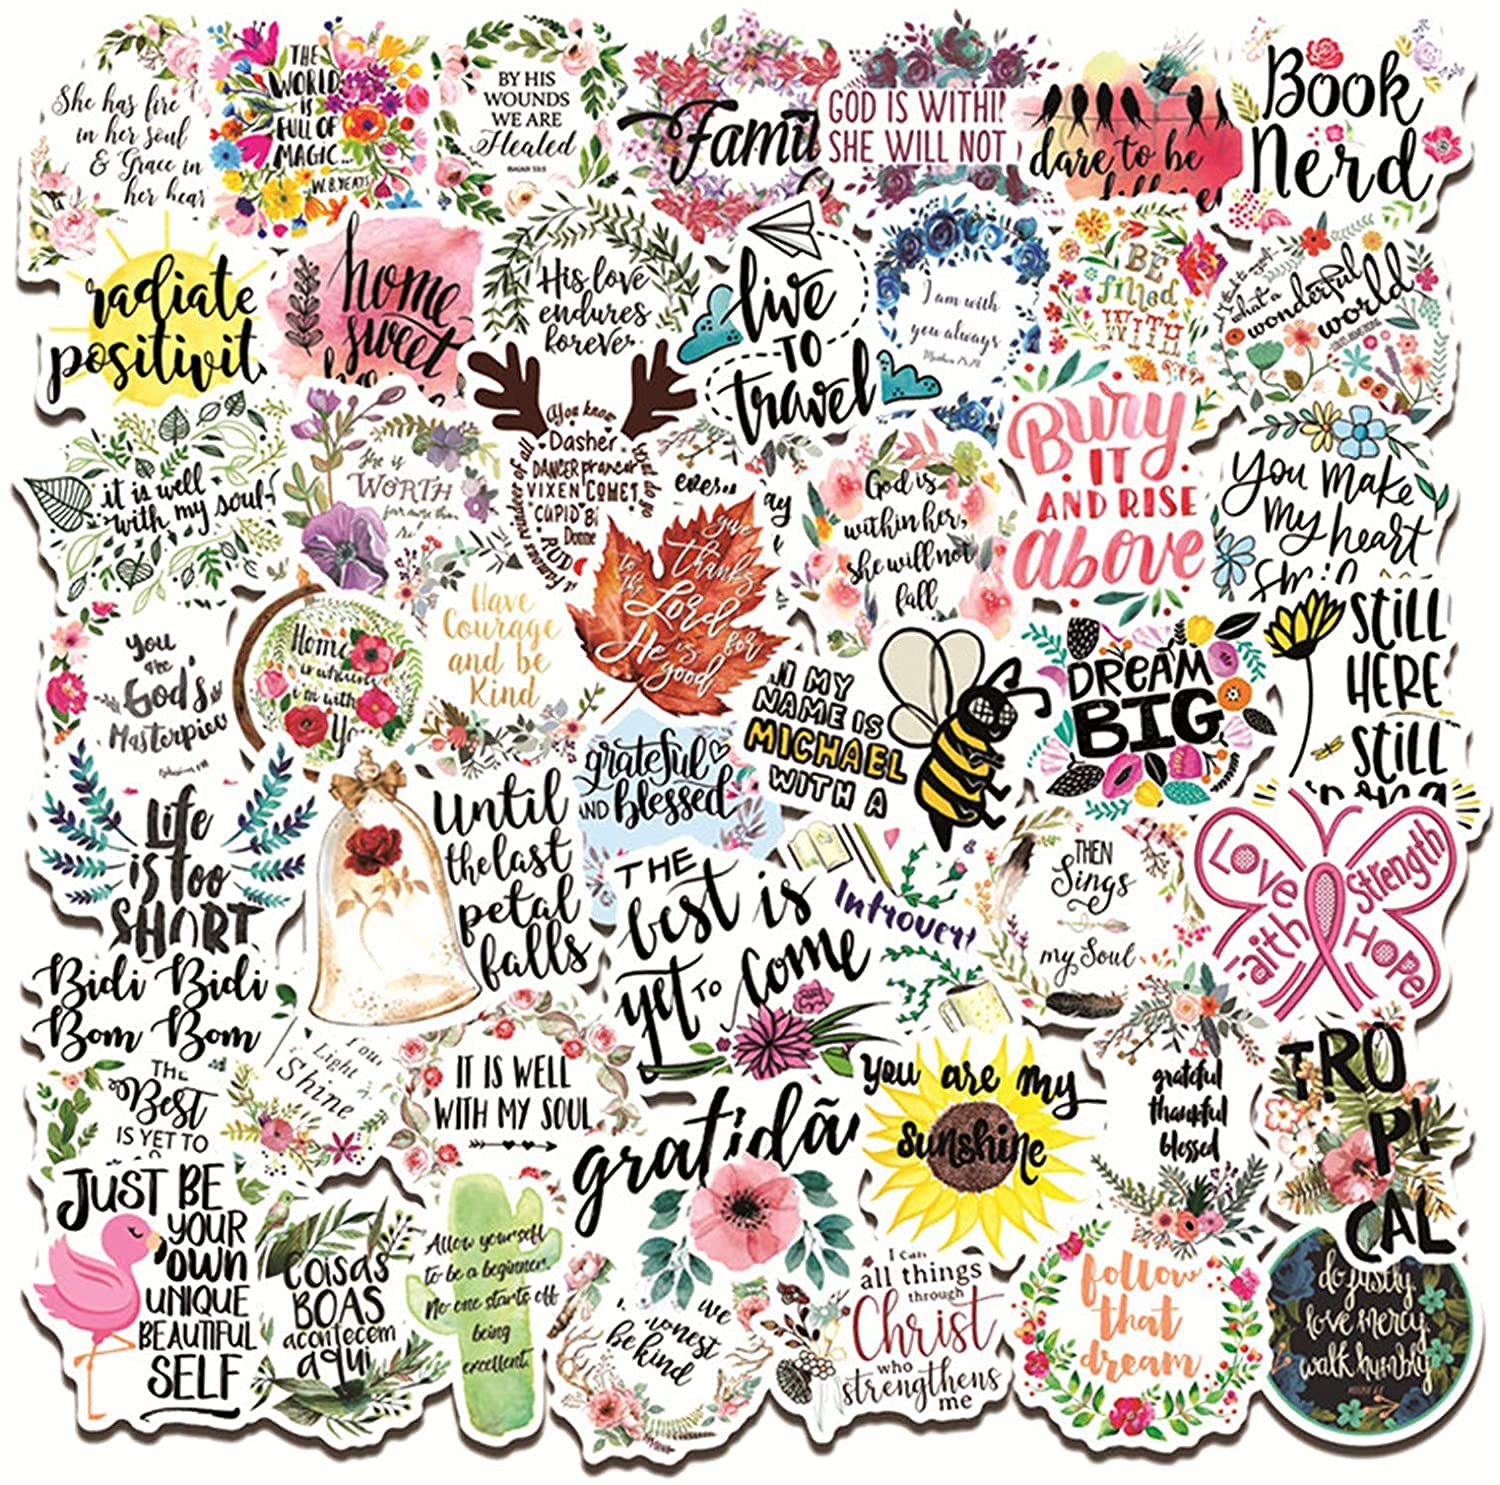 She has fire
in her soul
& Grace in
her hear
THE
WORLD
IS
FULL OF
MAGIC...
W.B. YEATS
BY HIS
WOUNDS
WE ARE
Healed
ISAIAH 53:5
Famil
GOD IS WITHIN
SHE WILL NOT
dare to be
Book
Nerd
radiate
positivit
home
sweet
His love
endures
forever.
live
TO
travel
I am with
you always
Matthew 28:20
BE
filled
WITH
what a
wonderful
world
it is well
with my soul
She is
WORTH
far more than
You know
Dasher
DANCER prancer
VIXEN COMET
CUPID
Donne
RUD
ever
ay
give
thanks
to
the
Lord
for
He is
good
God is
within her,
she will not
fall
Bury
IT
AND RISE
above
You make
my heart
You
are
God's
Masterpiece
Home
is wherever
i'm with
Yo
Have
Courage
and be
Kind
grateful
AND blessed
MY
NAME IS
MICHAEL
WITH A
DREAM
BIG
STILL
HERE
STILL
Life
is too
SHORT
Until
the last
petal
falls
THE
best is
yet TO come
Introvert
THEN
Sings
my Soul
Love
Strength
Faith
Hope
Bidi Bidi
Bom Bom
THE
Best
IS YET TO
Light
Shine
IT IS WELL
WITH MY SOUL
gratidã
you are my
sunshine
grateful
thankful
blessed
TRO
PI
CAL
JUST BE
YOUR
OWN
UNIQUE
BEAUTIFUL
SELF
COISAS
BOAS
acontecem
aqui
Allow yourself
to be a beginner.
No one starts off
being
excellent.
be kind
I can
all things
through
Christ
who
strengthens
me
follow
that
dream
do justly
love mercy
walk humbly